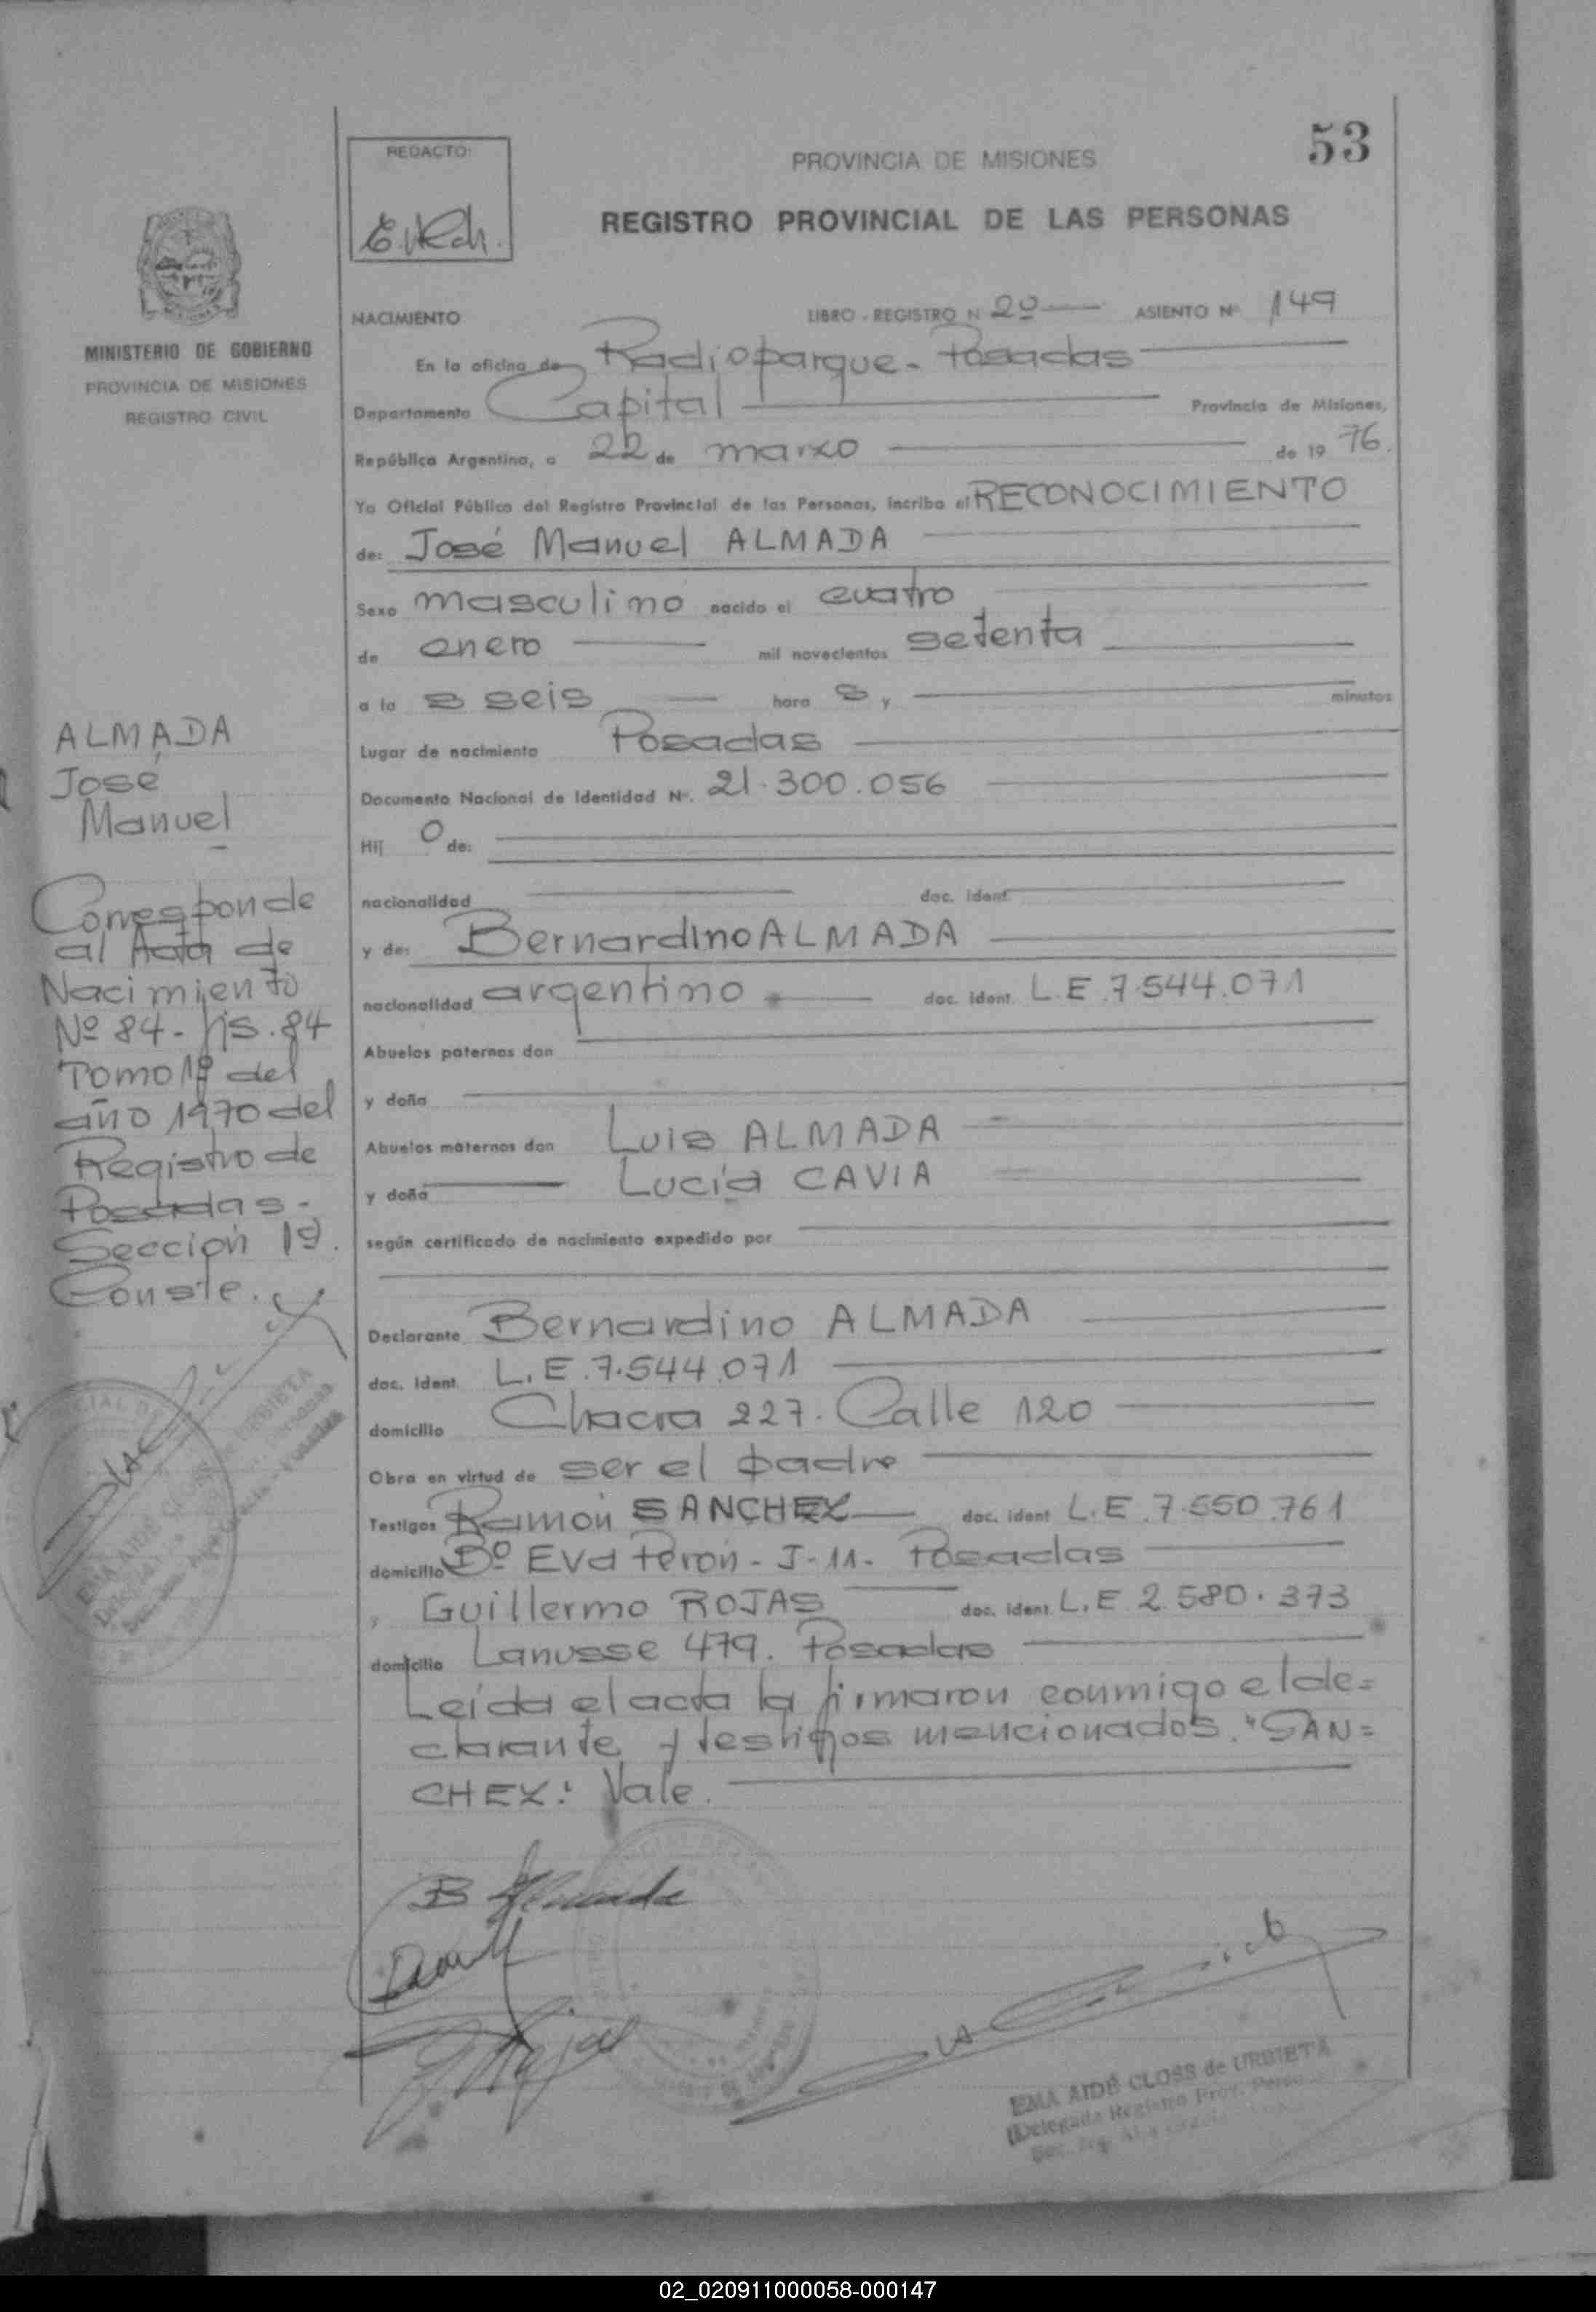 53
REDACTO:
PROVINCIA DE MISIONES
REGISTRO PROVINCIAL DE LAS PERSONAS
MINISTERIO DE GOBIERNO
PROVINCIA DE MISIONES
REGISTRO CIVIL
NACIMIENTO LIBRO - REGISTRO N 2º ASIENTO Nº 149
En la oficina de Radioparque - Posadas
Departamento Capital Provincia de Misiones,
República Argentina, a 22 de marzo de 19 76.
Yo Oficial Público del Registro Provincial de las Personas, incribo el RECONOCIMIENTO
de: José Manuel ALMADA
Sexo masculino nacido el cuatro
de enero mil novecientos setenta
a la s seis hora s y minutos
Lugar de nacimiento Posadas
Documento Nacional de Identidad Nº. 21.300.056
Hij o de:
nacionalidad doc. ident.
y de: Bernardino ALMADA
nacionalidad argentino doc. ident. L.E.7.544.071
Abuelos paternos don
y doña
Abuelos maternos don Luis ALMADA
y doña Lucía CAVIA
según certificado de nacimiento expedido por
Declarante Bernardino ALMADA
doc. ident. L.E.7.544.071
domicilio Chacra 227. Calle 120
Obra en virtud de ser el padre
Testigos Ramón SANCHEZ doc. ident L.E.7.550.761
domicilio Bº Eva Perón - J-11- Posadas
y Guillermo ROJAS doc. ident L.E 2.580.373
domicilio Lanusse 479. Posadas
Leída el acta la firmaron conmigo el de=
clarante y testigos mencionados. "SAN=
CHEZ: Vale.
ALMADA
José
Manuel
Corresponde
al Acta de
Nacimiento
Nº 84 - fjs. 84
Tomo 1º del
año 1970 del
Registro de
Posadas -
Sección 1º.
Conste.
B Almada
EMA AIDÉ CLOSS de URBIETA
Delegada Registro Prov. Perso
02_020911000058-000147